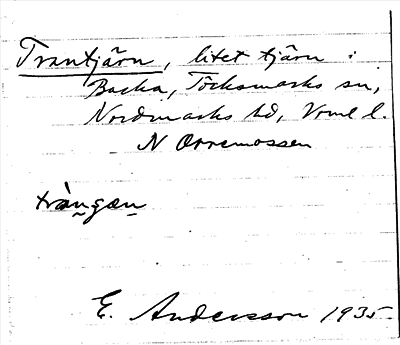 Trantjärn, litet tjärn i
Backa, Töcksmarks sn,
Nordmarks hd, Vrml l.
N Orremossen
tràngæn
E. Andersson 1935